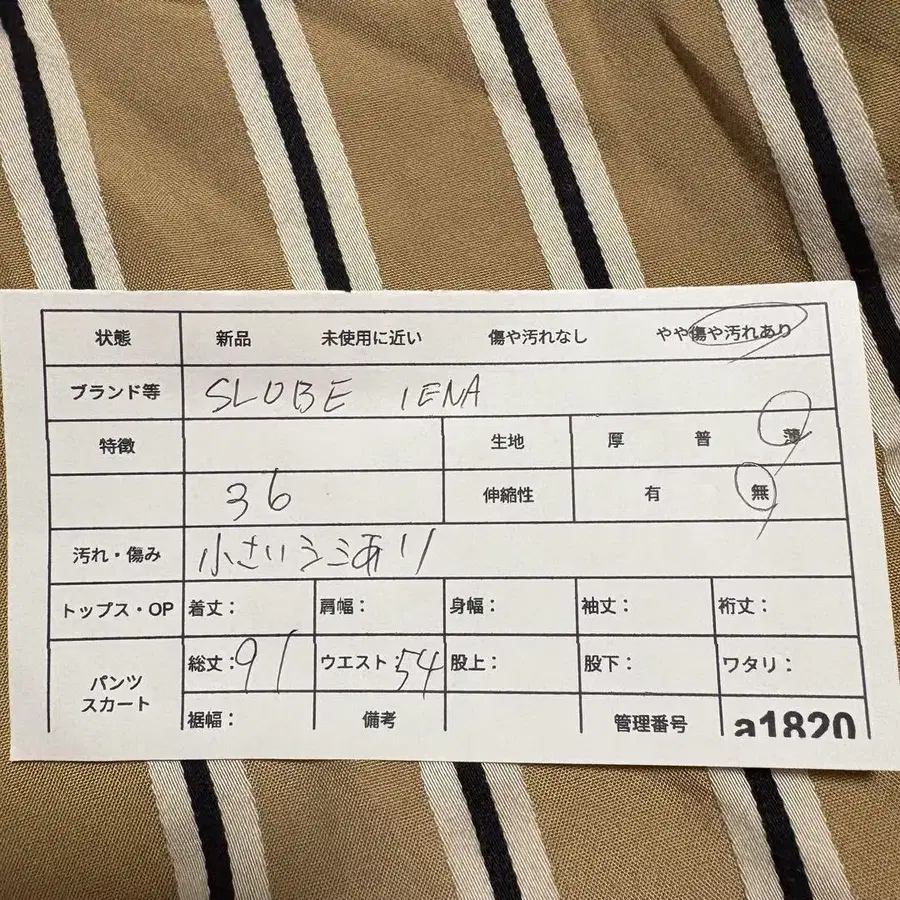 状態 新品 未使用に近い 傷や汚れなし やや傷や汚れあり
ブランド等 SLOBE IENA
特徴 生地 厚 普 薄
36 伸縮性 有 無
汚れ・傷み 小さいシミあり
トップス・OP 着丈: 肩幅: 身幅: 袖丈: 裄丈:
パンツ スカート 総丈:91 ウエスト:54 股上: 股下: ワタリ:
裾幅: 備考 管理番号 a1820